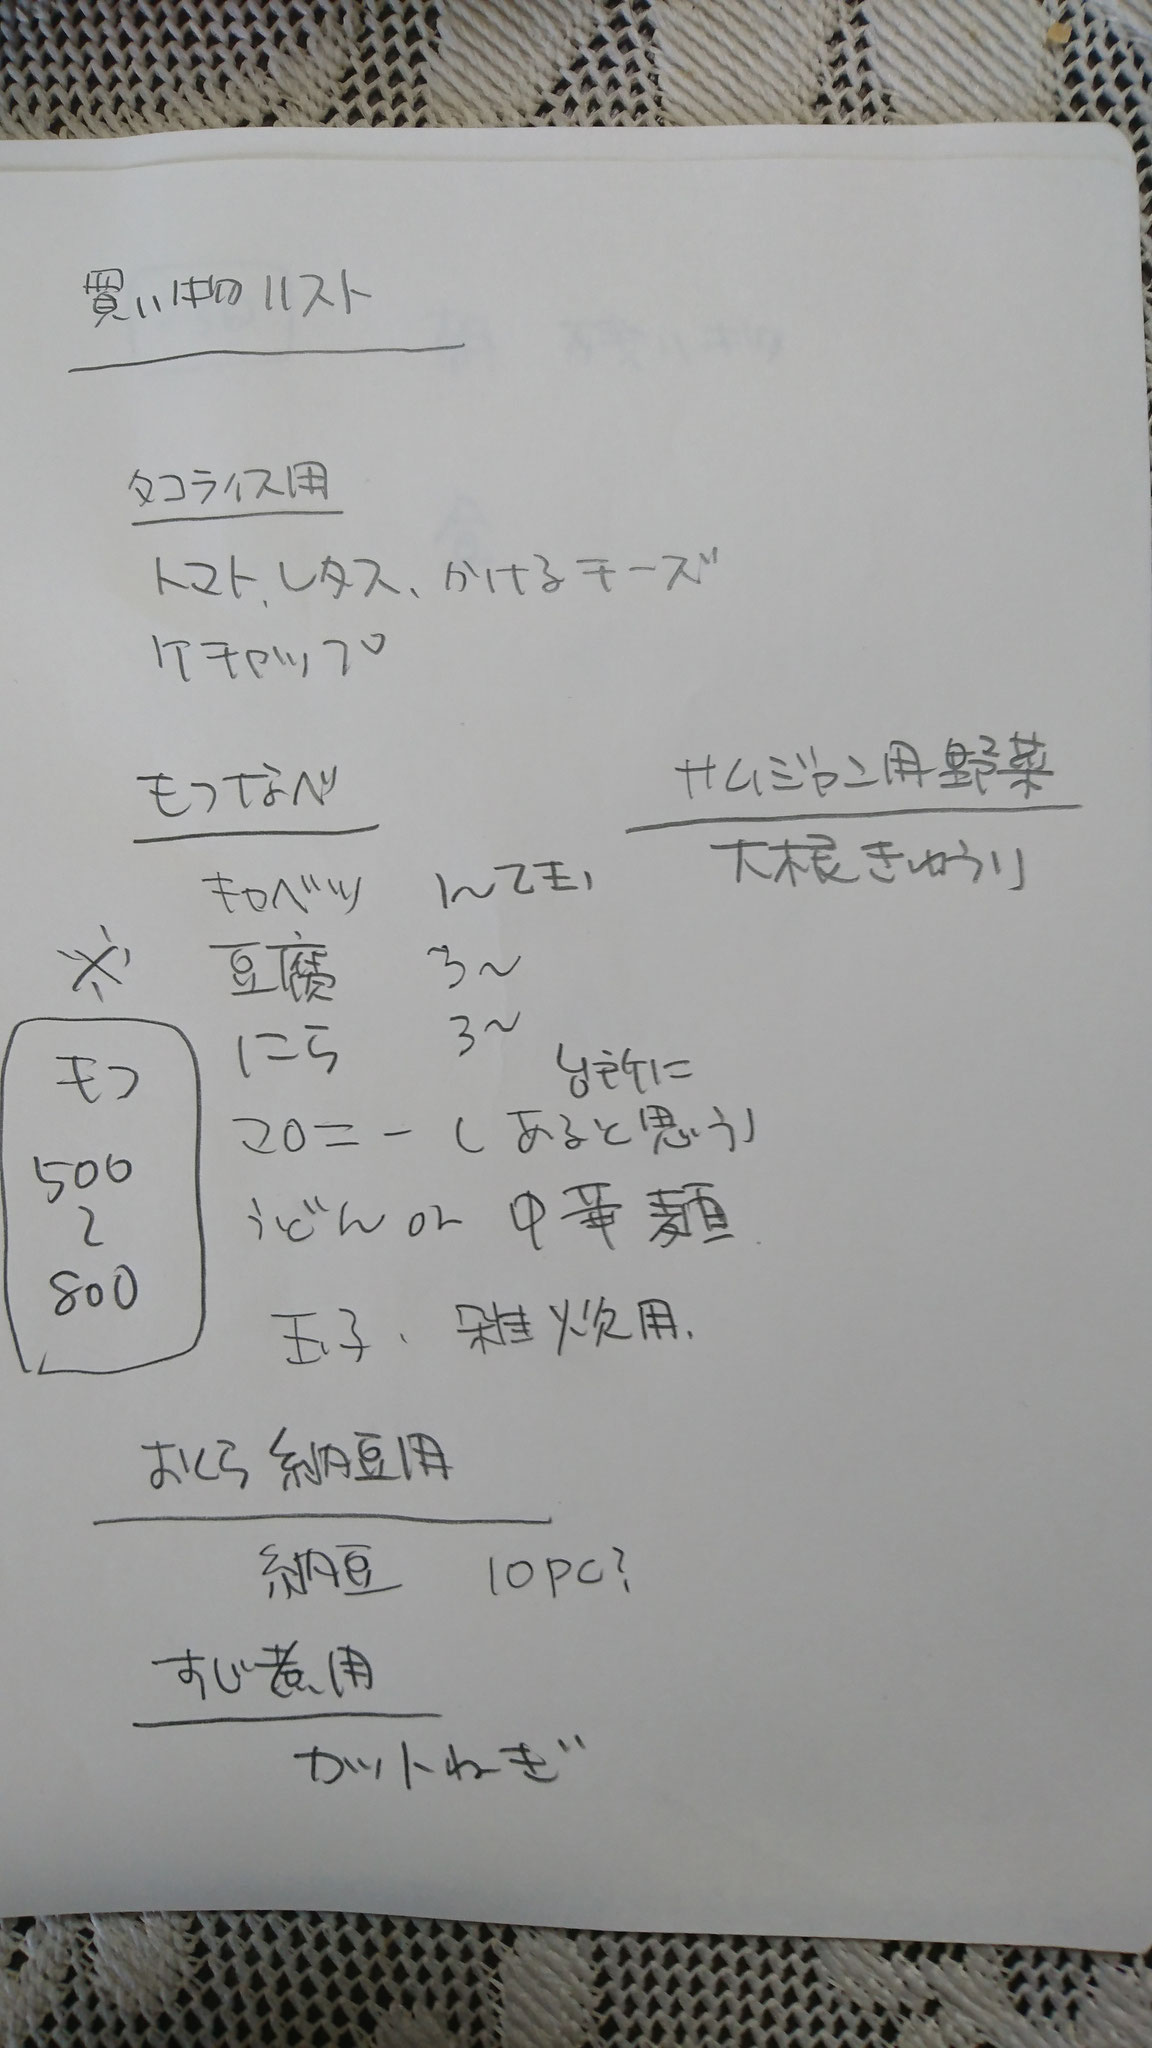 買い物リスト
タコライス用
トマト、レタス、かけるチーズ
ケチャップ
もつなべ
キャベツ
豆腐 3〜
にら 3〜
マロニー (台所にあると思う)
うどん or 中華麺
玉子、雑炊用、
※
モツ
500
〜
800
サムジョン用野菜
大根きゅうり
おくら納豆用
納豆 10pc?
すじ煮用
カットねぎ